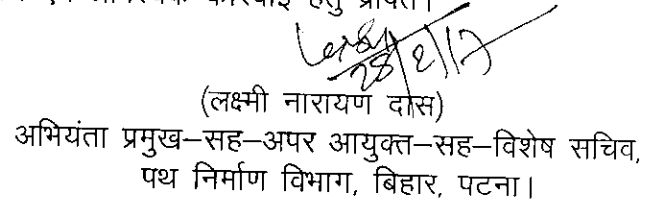 एवं आवश्यक कार्रवाई हेतु प्रेषित।
28/2/17
(लक्ष्मी नारायण दास)
अभियंता प्रमुख–सह–अपर आयुक्त–सह–विशेष सचिव,
पथ निर्माण विभाग, बिहार, पटना।